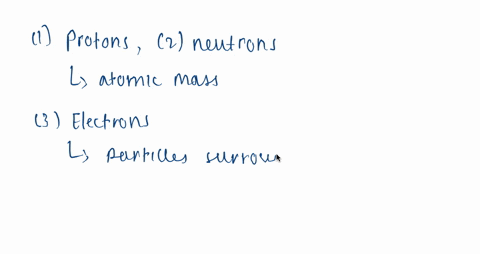 (1) Protons, (2) neutrons
↳ atomic mass
(3) Electrons
↳ particles surrou